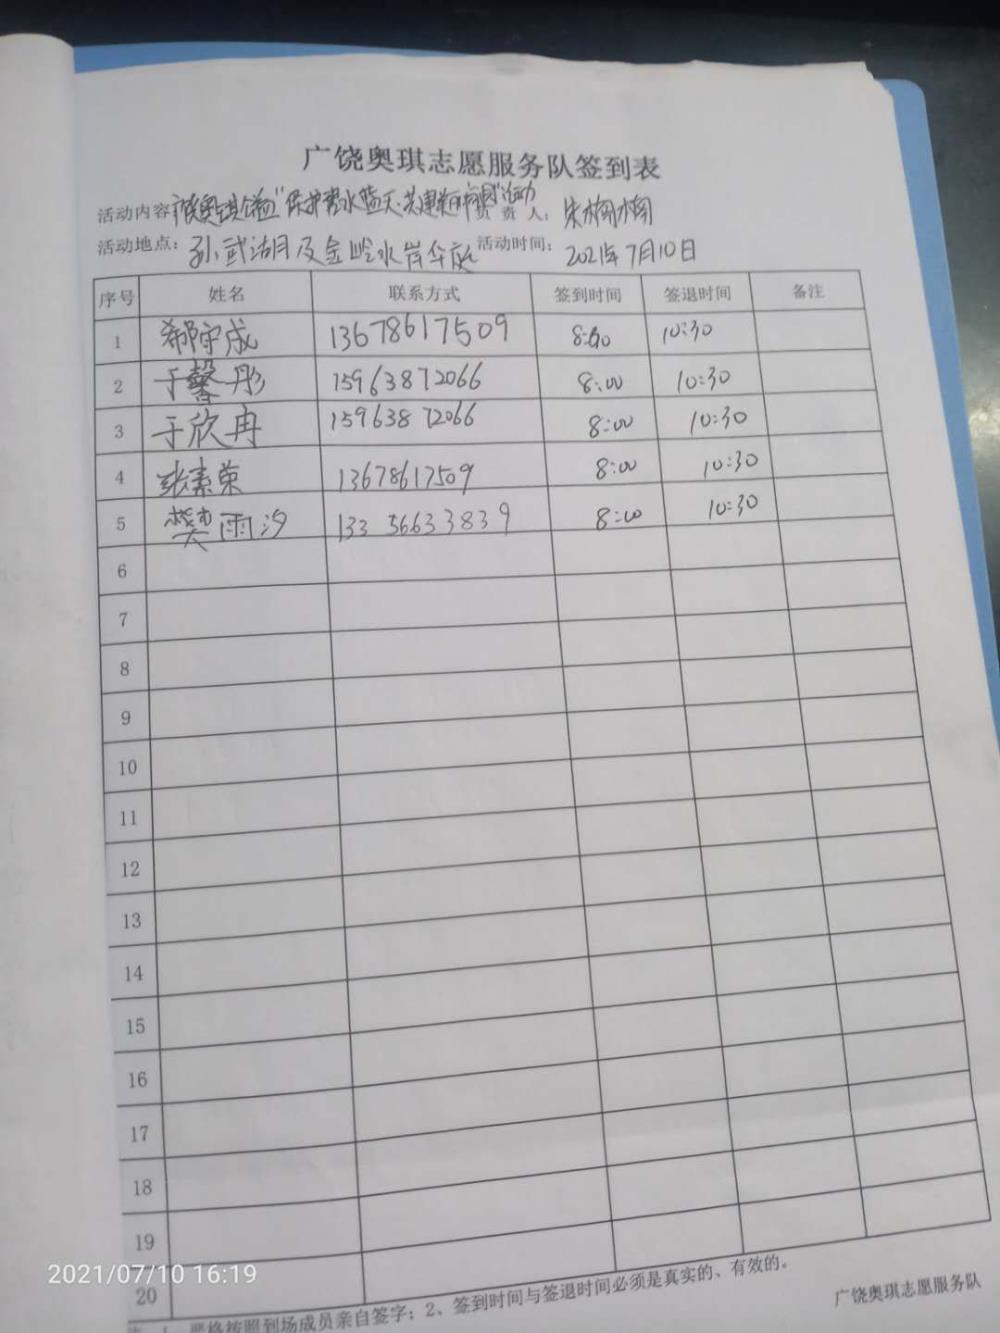 广饶奥琪志愿服务队签到表
活动内容:广饶奥琪公益"保护碧水蓝天·共建美丽家园"活动 负责人:朱梅梅
活动地点:孙武湖及金岭水岸华庭 活动时间:2021年7月10日
序号 姓名 联系方式 签到时间 签退时间 备注
1 郗守成 13678617509 8:00 10:30
2 于馨彤 15963872066 8:00 10:30
3 于欣冉 15963872066 8:00 10:30
4 张素荣 13678617509 8:00 10:30
5 樊雨汐 13356633839 8:00 10:30
6
7
8
9
10
11
12
13
14
15
16
17
18
19
20
1、严格按照到场成员亲自签字;2、签到时间与签退时间必须是真实的、有效的。
广饶奥琪志愿服务队
2021/07/10 16:19